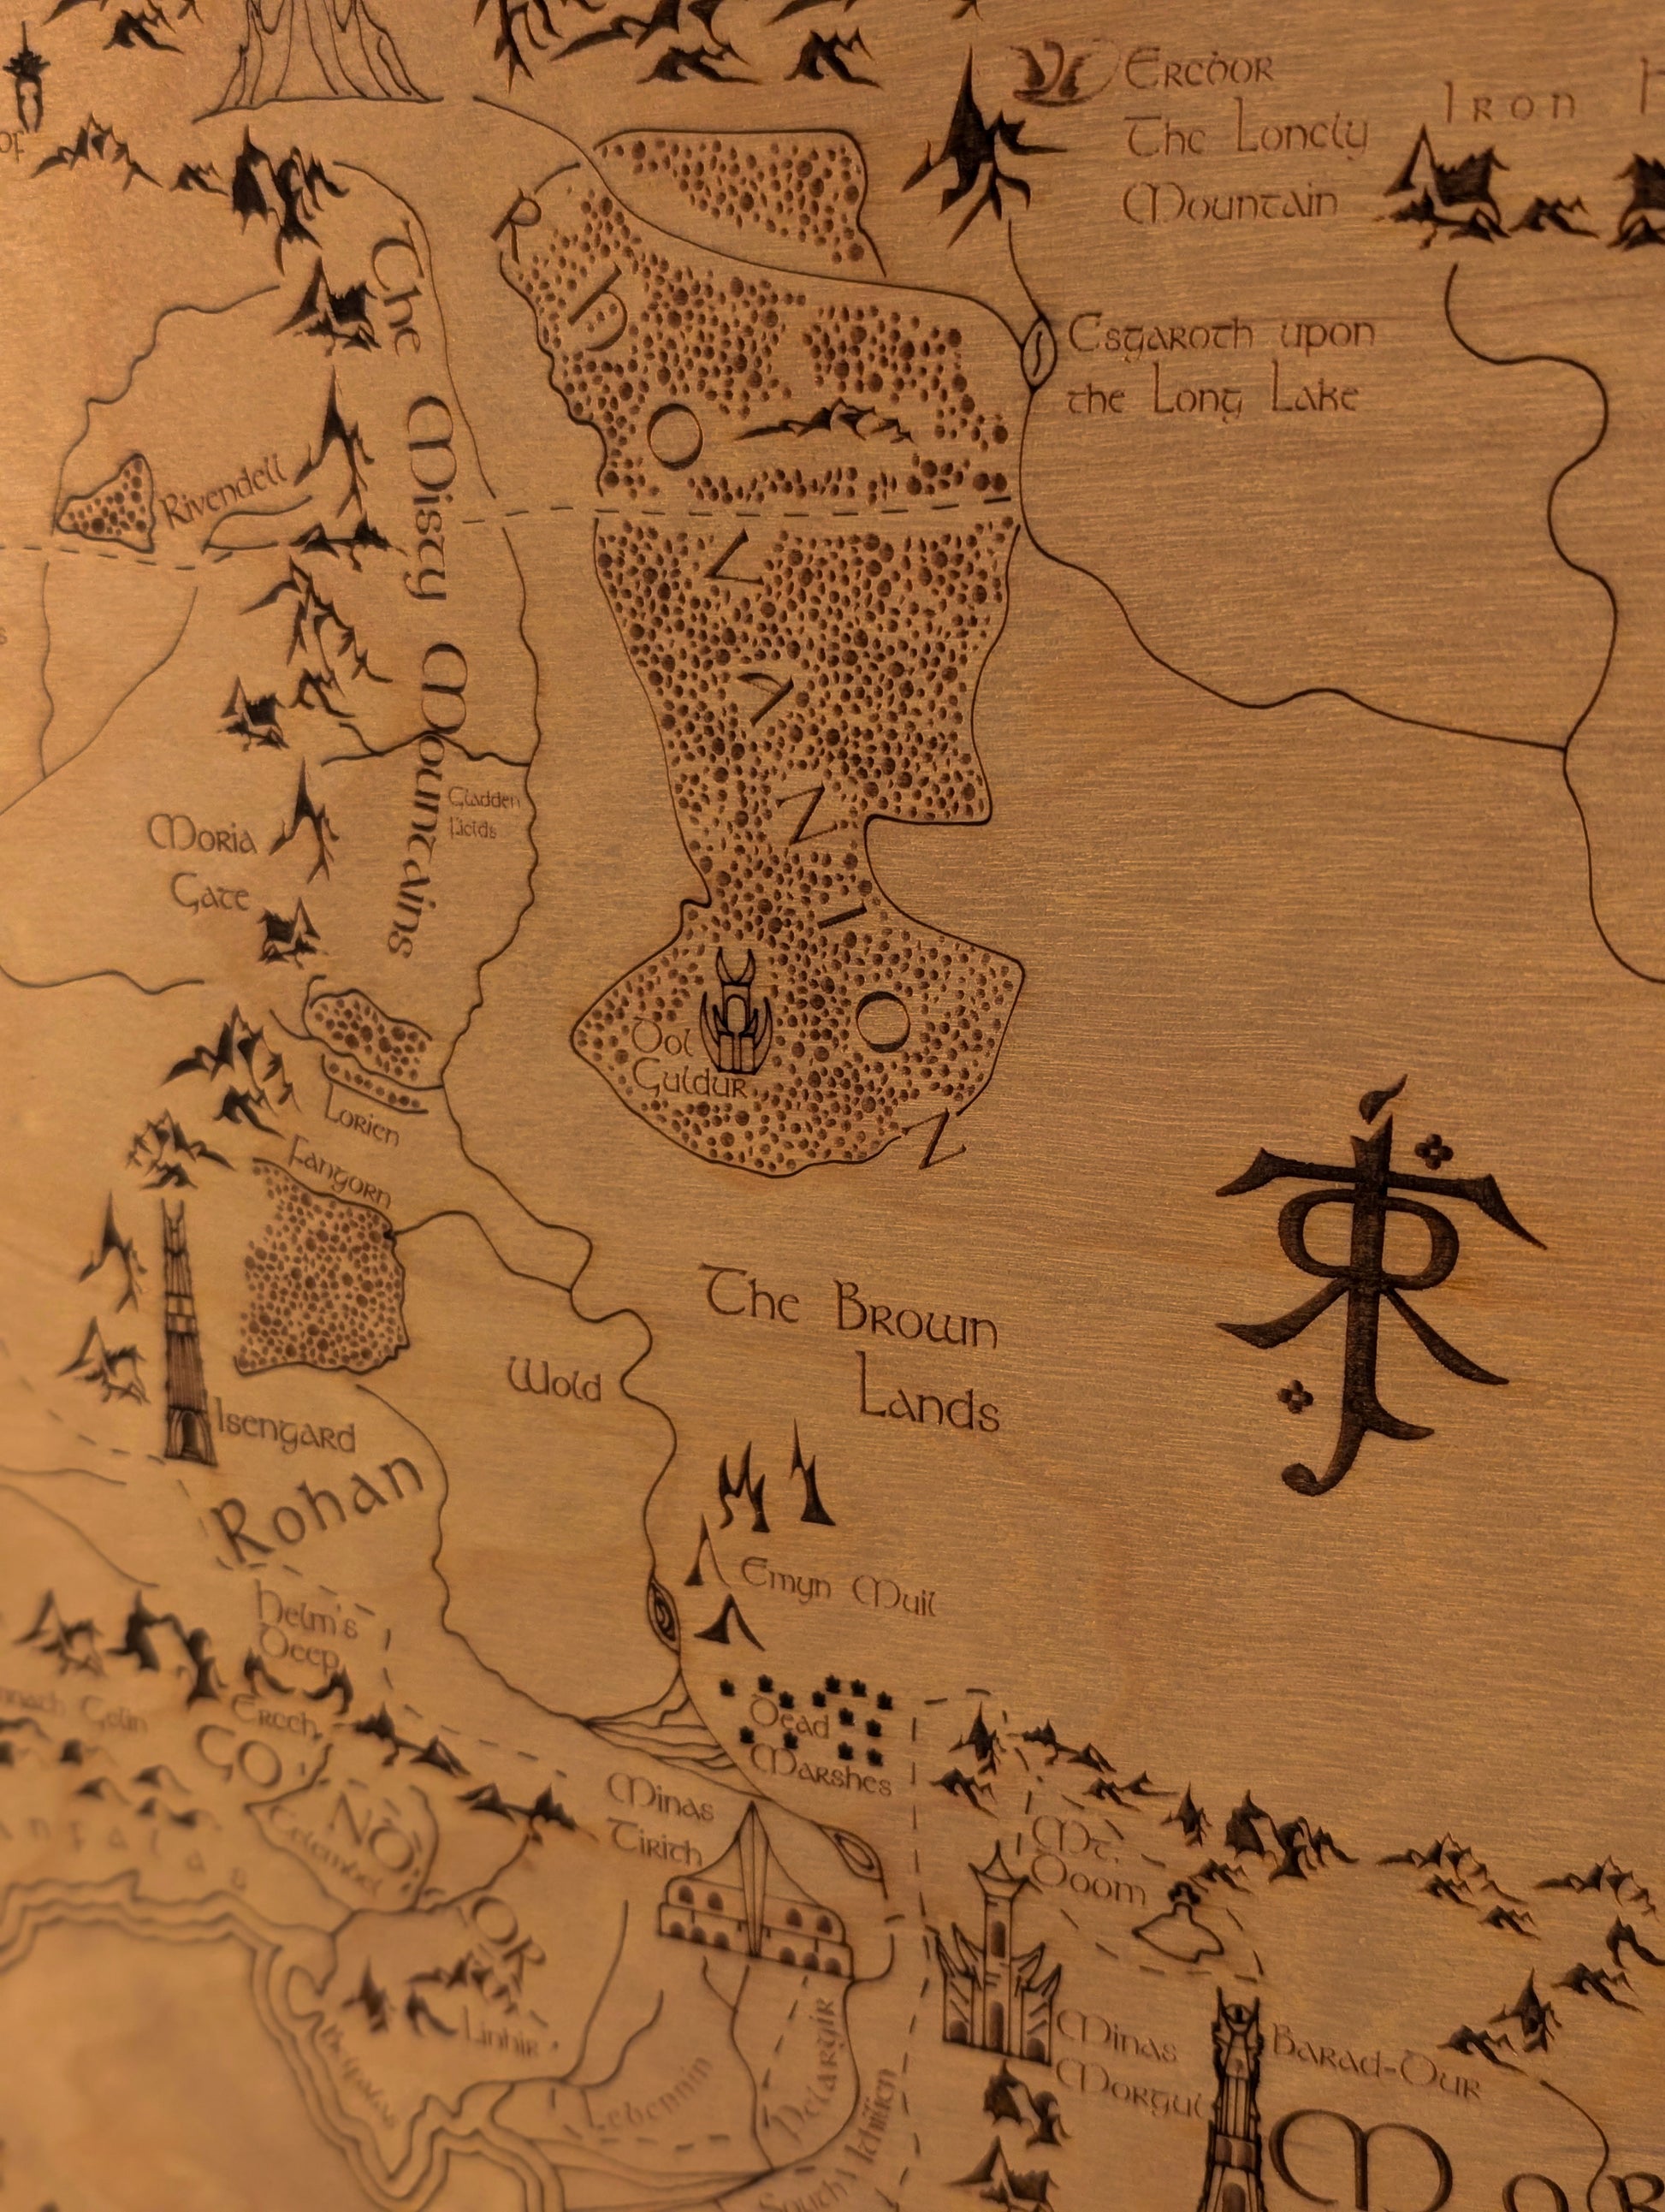 of
Erebor
The Lonely
Mountain
Iron
Rhovanion
The Misty Mountains
Esgaroth upon
the Long Lake
Rivendell
Gladden
Fields
Moria
Gate
Dol
Guldur
Lorien
Fangorn
The Brown
Lands
Wold
Isengard
Rohan
Emyn Muil
Helm's
Deep
Erech
Dead
Marshes
GONDOR
Minas
Tirith
Mt.
Doom
Linhir
Minas
Morgul
Barad-Dur
Lebennin
Pelargir
South Ithilien
Mor